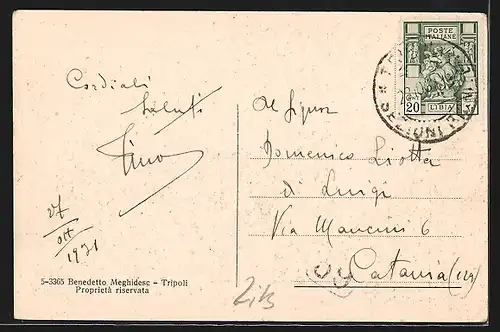 Cordiali
Saluti
Tino
27
ott
1931
5-3365 Benedetto Meghidesc - Tripoli
Proprietà riservata
POSTE
ITALIANE
20
LIBIA
Al Signor
Domenico Liotta
di Luigi
Via Mancini 6
Catania